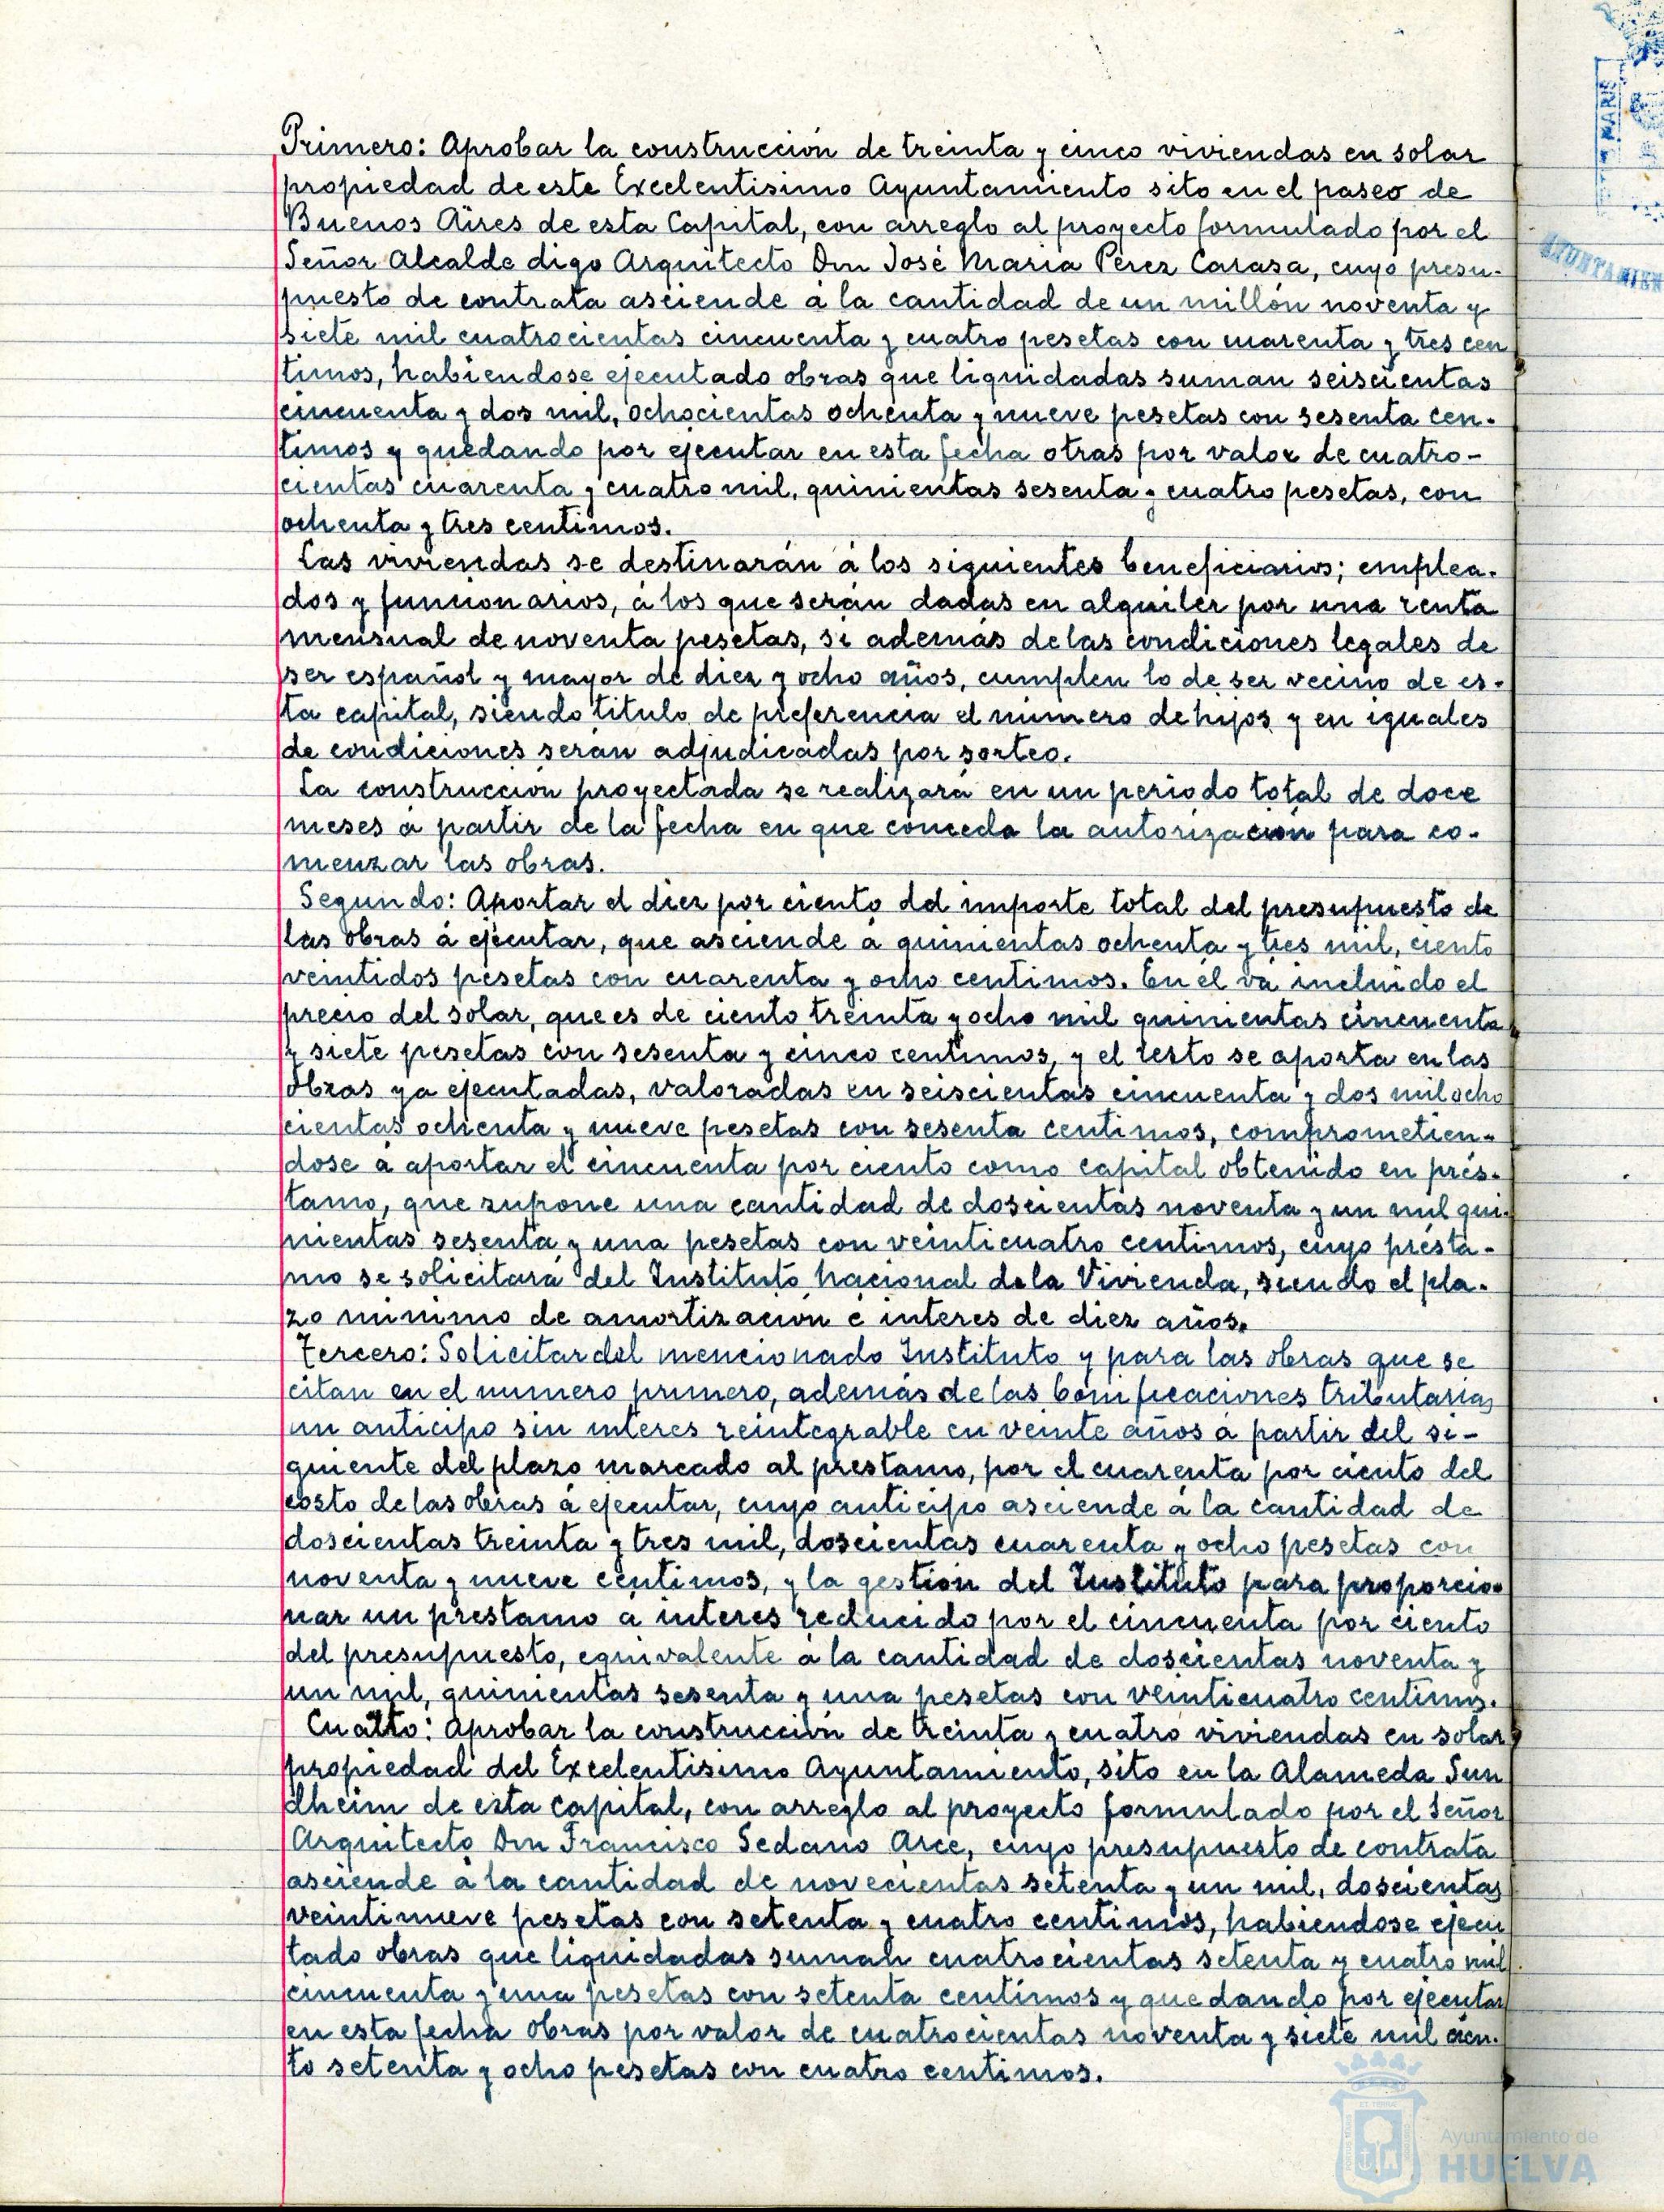 Primero: Aprobar la construcción de treinta y cinco viviendas en solar
propiedad de este Excelentisimo Ayuntamiento sito en el paseo de
Buenos Aires de esta Capital, con arreglo al proyecto formulado por el
Señor Alcalde digo Arquitecto Don José Maria Pérez Carasa, cuyo presu-
puesto de contrata asciende á la cantidad de un millón noventa y
siete mil cuatrocientas cincuenta y cuatro pesetas con cuarenta y tres cen
timos, habiendose ejecutado obras que liquidadas suman seiscientas
cincuenta y dos mil, ochocientas ochenta y nueve pesetas con sesenta cen-
timos y quedando por ejecutar en esta fecha otras por valor de cuatro-
cientas cuarenta y cuatro mil, quinientas sesenta y cuatro pesetas, con
ochenta y tres centimos.
Las viviendas se destinarán á los siguientes beneficiarios; emplea-
dos y funcionarios, á los que serán dadas en alquiler por una renta
mensual de noventa pesetas, si además de las condiciones legales de
ser español y mayor de diez y ocho años, cumplen lo de ser vecino de es-
ta capital, siendo titulo de preferencia el número de hijos y en iguales
de condiciones serán adjudicadas por sorteo.
La construcción proyectada se realizará en un periodo total de doce
meses á partir de la fecha en que conceda la autorización para co-
menzar las obras.
Segundo: Aportar el diez por ciento del importe total del presupuesto de
las obras á ejecutar, que asciende á quinientas ochenta y tres mil, ciento
veintidos pesetas con cuarenta y ocho centimos. En él va incluido el
precio del solar, que es de ciento treinta y ocho mil quinientas cincuenta
y siete pesetas con sesenta y cinco centimos, y el resto se aporta en las
obras ya ejecutadas, valoradas en seiscientas cincuenta y dos mil ocho
cientas ochenta y nueve pesetas con sesenta centimos, comprometien-
dose á aportar el cincuenta por ciento como capital obtenido en prés-
tamo, que supone una cantidad de doscientas noventa y un mil qui-
nientas sesenta y una pesetas con veinticuatro centimos, cuyo présta-
mo se solicitará del Instituto Nacional de la Vivienda, siendo el pla-
zo minimo de amortizacion é interes de diez años.
Tercero: Solicitar del mencionado Instituto y para las obras que se
citan en el numero primero, además de las bonificaciones tributarias
un anticipo sin interes reintegrable en veinte años á partir del si-
guiente del plazo marcado al prestamo, por el cuarenta por ciento del
costo de las obras á ejecutar, cuyo anticipo asciende á la cantidad de
doscientas treinta y tres mil, doscientas cuarenta y ocho pesetas con
noventa y nueve centimos, y la gestión del Instituto para proporcio-
nar un prestamo á interes reducido por el cincuenta por ciento
del presupuesto, equivalente á la cantidad de doscientas noventa y
un mil, quinientas sesenta y una pesetas con veinticuatro centimos.
Cuatto: Aprobar la construcción de treinta y cuatro viviendas en solar
propiedad del Excelentisimo Ayuntamiento, sito en la Alameda Sun
dheim de esta capital, con arreglo al proyecto formulado por el Señor
Arquitecto Don Francisco Sedano Arce, cuyo presupuesto de contrata
asciende á la cantidad de novecientas setenta y un mil, doscientas
veintinueve pesetas con setenta y cuatro centimos, habiendose ejecu
tado obras que liquidadas suman cuatrocientas setenta y cuatro mil
cincuenta y una pesetas con setenta centimos y quedando por ejecutar
en esta fecha obras por valor de cuatrocientas noventa y siete mil cien-
to setenta y ocho pesetas con cuatro centimos.
MARIS
AYUNTAMIEN
Ayuntamiento de
HUELVA